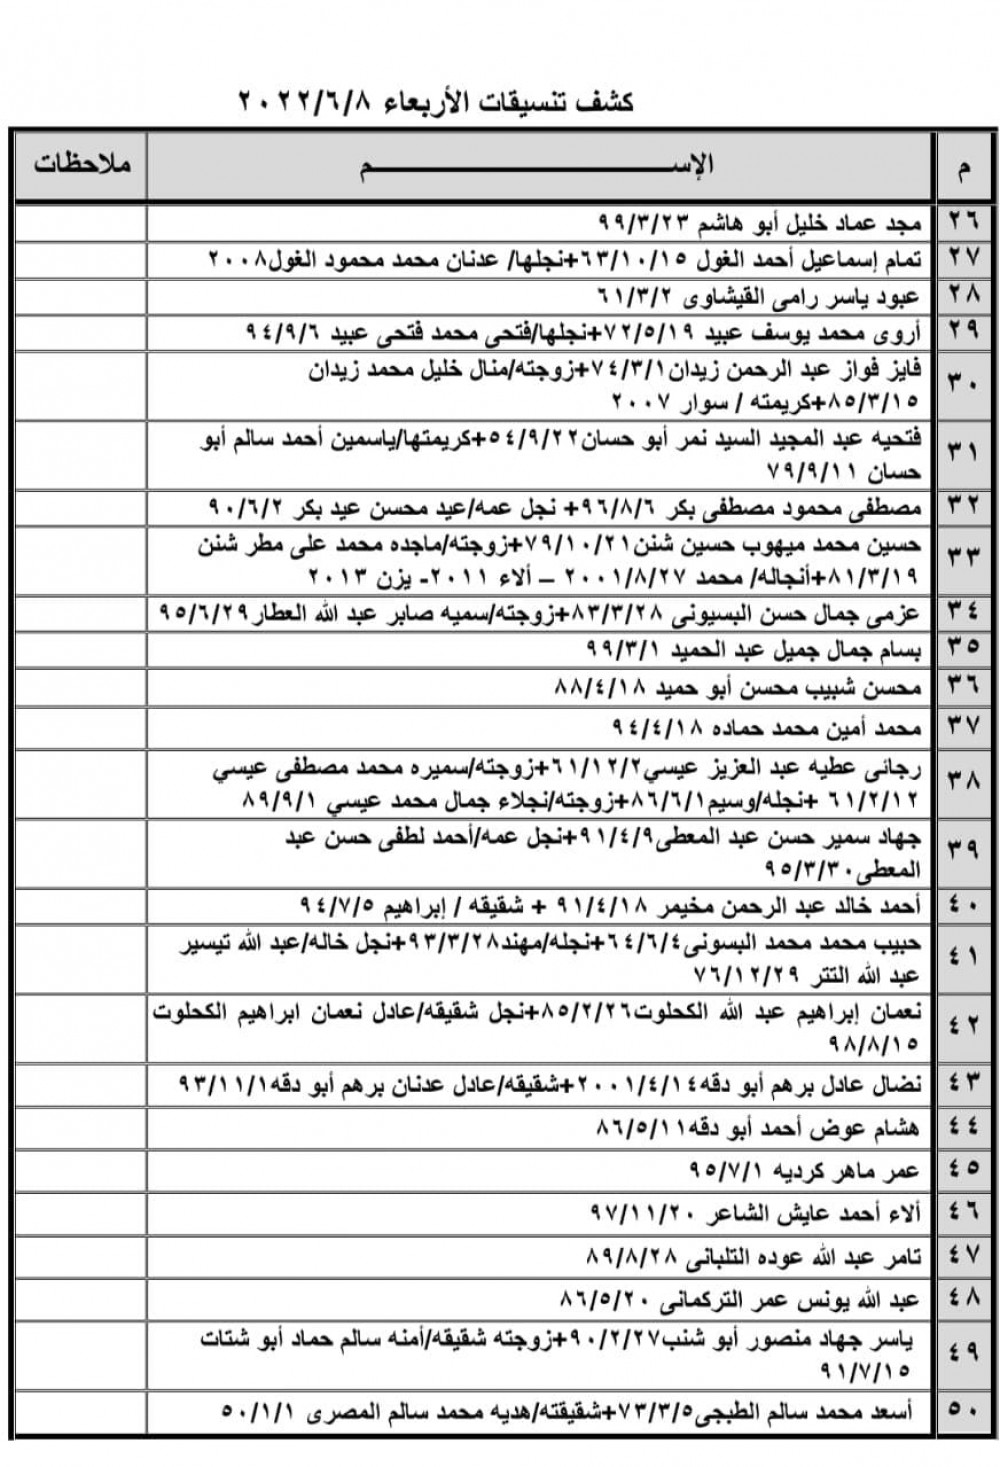 كشف تنسيقات الأربعاء ٢٠٢٢/٦/٨
م الإســـــــــم ملاحظات
٢٦ مجد عماد خليل أبو هاشم ٩٩/٣/٢٣
٢٧ تمام إسماعيل أحمد الغول ٦٣/١٠/١٥+نجلها/ عدنان محمد محمود الغول٢٠٠٨
٢٨ عبود ياسر رامى القيشاوى ٦١/٣/٢
٢٩ أروى محمد يوسف عبيد ٧٢/٥/١٩+نجلها/فتحى محمد فتحى عبيد ٩٤/٩/٦
٣٠ فايز فواز عبد الرحمن زيدان٧٤/٣/١+زوجته/منال خليل محمد زيدان
٨٥/٣/١٥+كريمته / سوار ٢٠٠٧
٣١ فتحيه عبد المجيد السيد نمر أبو حسان٥٤/٩/٢٢+كريمتها/ياسمين أحمد سالم أبو
حسان ٧٩/٩/١١
٣٢ مصطفى محمود مصطفى بكر ٩٦/٨/٦+ نجل عمه/عيد محسن عيد بكر ٩٠/٦/٢
٣٣ حسين محمد ميهوب حسين شنن٧٩/١٠/٢١+زوجته/ماجده محمد على مطر شنن
٨١/٣/١٩+أنجاله/ محمد ٢٠٠١/٨/٢٧ – ألاء ٢٠١١- يزن ٢٠١٣
٣٤ عزمى جمال حسن البسيونى ٨٣/٣/٢٨+زوجته/سميه صابر عبد الله العطار٩٥/٦/٢٩
٣٥ بسام جمال جميل عبد الحميد ٩٩/٣/١
٣٦ محسن شبيب محسن أبو حميد ٨٨/٤/١٨
٣٧ محمد أمين محمد حماده ٩٤/٤/١٨
٣٨ رجائى عطيه عبد العزيز عيسي٦١/١٢/٢+زوجته/سميره محمد مصطفى عيسي
٦١/٢/١٢ +نجله/وسيم٨٦/٦/١+زوجته/نجلاء جمال محمد عيسي ٨٩/٩/١
٣٩ جهاد سمير حسن عبد المعطى٩١/٤/٩+نجل عمه/أحمد لطفى حسن عبد
المعطى٩٥/٣/٣٠
٤٠ أحمد خالد عبد الرحمن مخيمر ٩١/٤/١٨ + شقيقه / إبراهيم ٩٤/٧/٥
٤١ حبيب محمد محمد البسونى٦٤/٦/٤+نجله/مهند٩٣/٣/٢٨+نجل خاله/عبد الله تيسير
عبد الله التتر ٧٦/١٢/٢٩
٤٢ نعمان إبراهيم عبد الله الكحلوت٨٥/٢/٢٦+نجل شقيقه/عادل نعمان ابراهيم الكحلوت
٩٨/٨/١٥
٤٣ نضال عادل برهم أبو دقه٢٠٠١/٤/١٤+شقيقه/عادل عدنان برهم أبو دقه٩٣/١١/١
٤٤ هشام عوض أحمد أبو دقه٨٦/٥/١١
٤٥ عمر ماهر كرديه ٩٥/٧/١
٤٦ ألاء أحمد عايش الشاعر ٩٧/١١/٢٠
٤٧ تامر عبد الله عوده التلبانى ٨٩/٨/٢٨
٤٨ عبد الله يونس عمر التركمانى ٨٦/٥/٢٠
٤٩ ياسر جهاد منصور أبو شنب٩٠/٢/٢٧+زوجته شقيقه/أمنه سالم حماد أبو شتات
٩١/٧/١٥
٥٠ أسعد محمد سالم الطبجى٧٣/٣/٥+شقيقته/هديه محمد سالم المصرى ٥٠/١/١